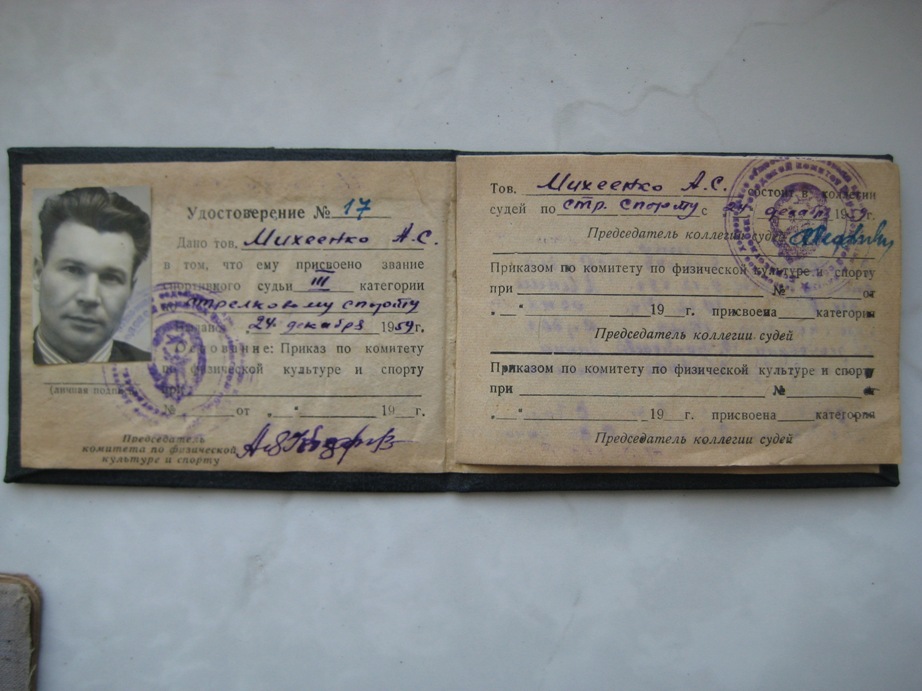 Удостоверение № 17
Дано тов. Михеенко А.С.
в том, что ему присвоено звание
спортивного судьи III категории
по стрелковому спорту
Выдано 24 декабря 1959г.
Основание: Приказ по комитету
по физической культуре и спорту
(личная подпись) при
№ от „ " 19 г.
Председатель
комитета по физической
культуре и спорту
Тов. Михеенко А.С. состоит в коллегии
судей по стр. спорту с 24 декабря 1959г.
Председатель коллегии судей
Приказом по комитету по физической культуре и спорту
при № от
„ " 19 г. присвоена категория
Председатель коллегии судей
Приказом по комитету по физической культуре и спорту
при №
„ " 19 г. присвоена категория
Председатель коллегии судей